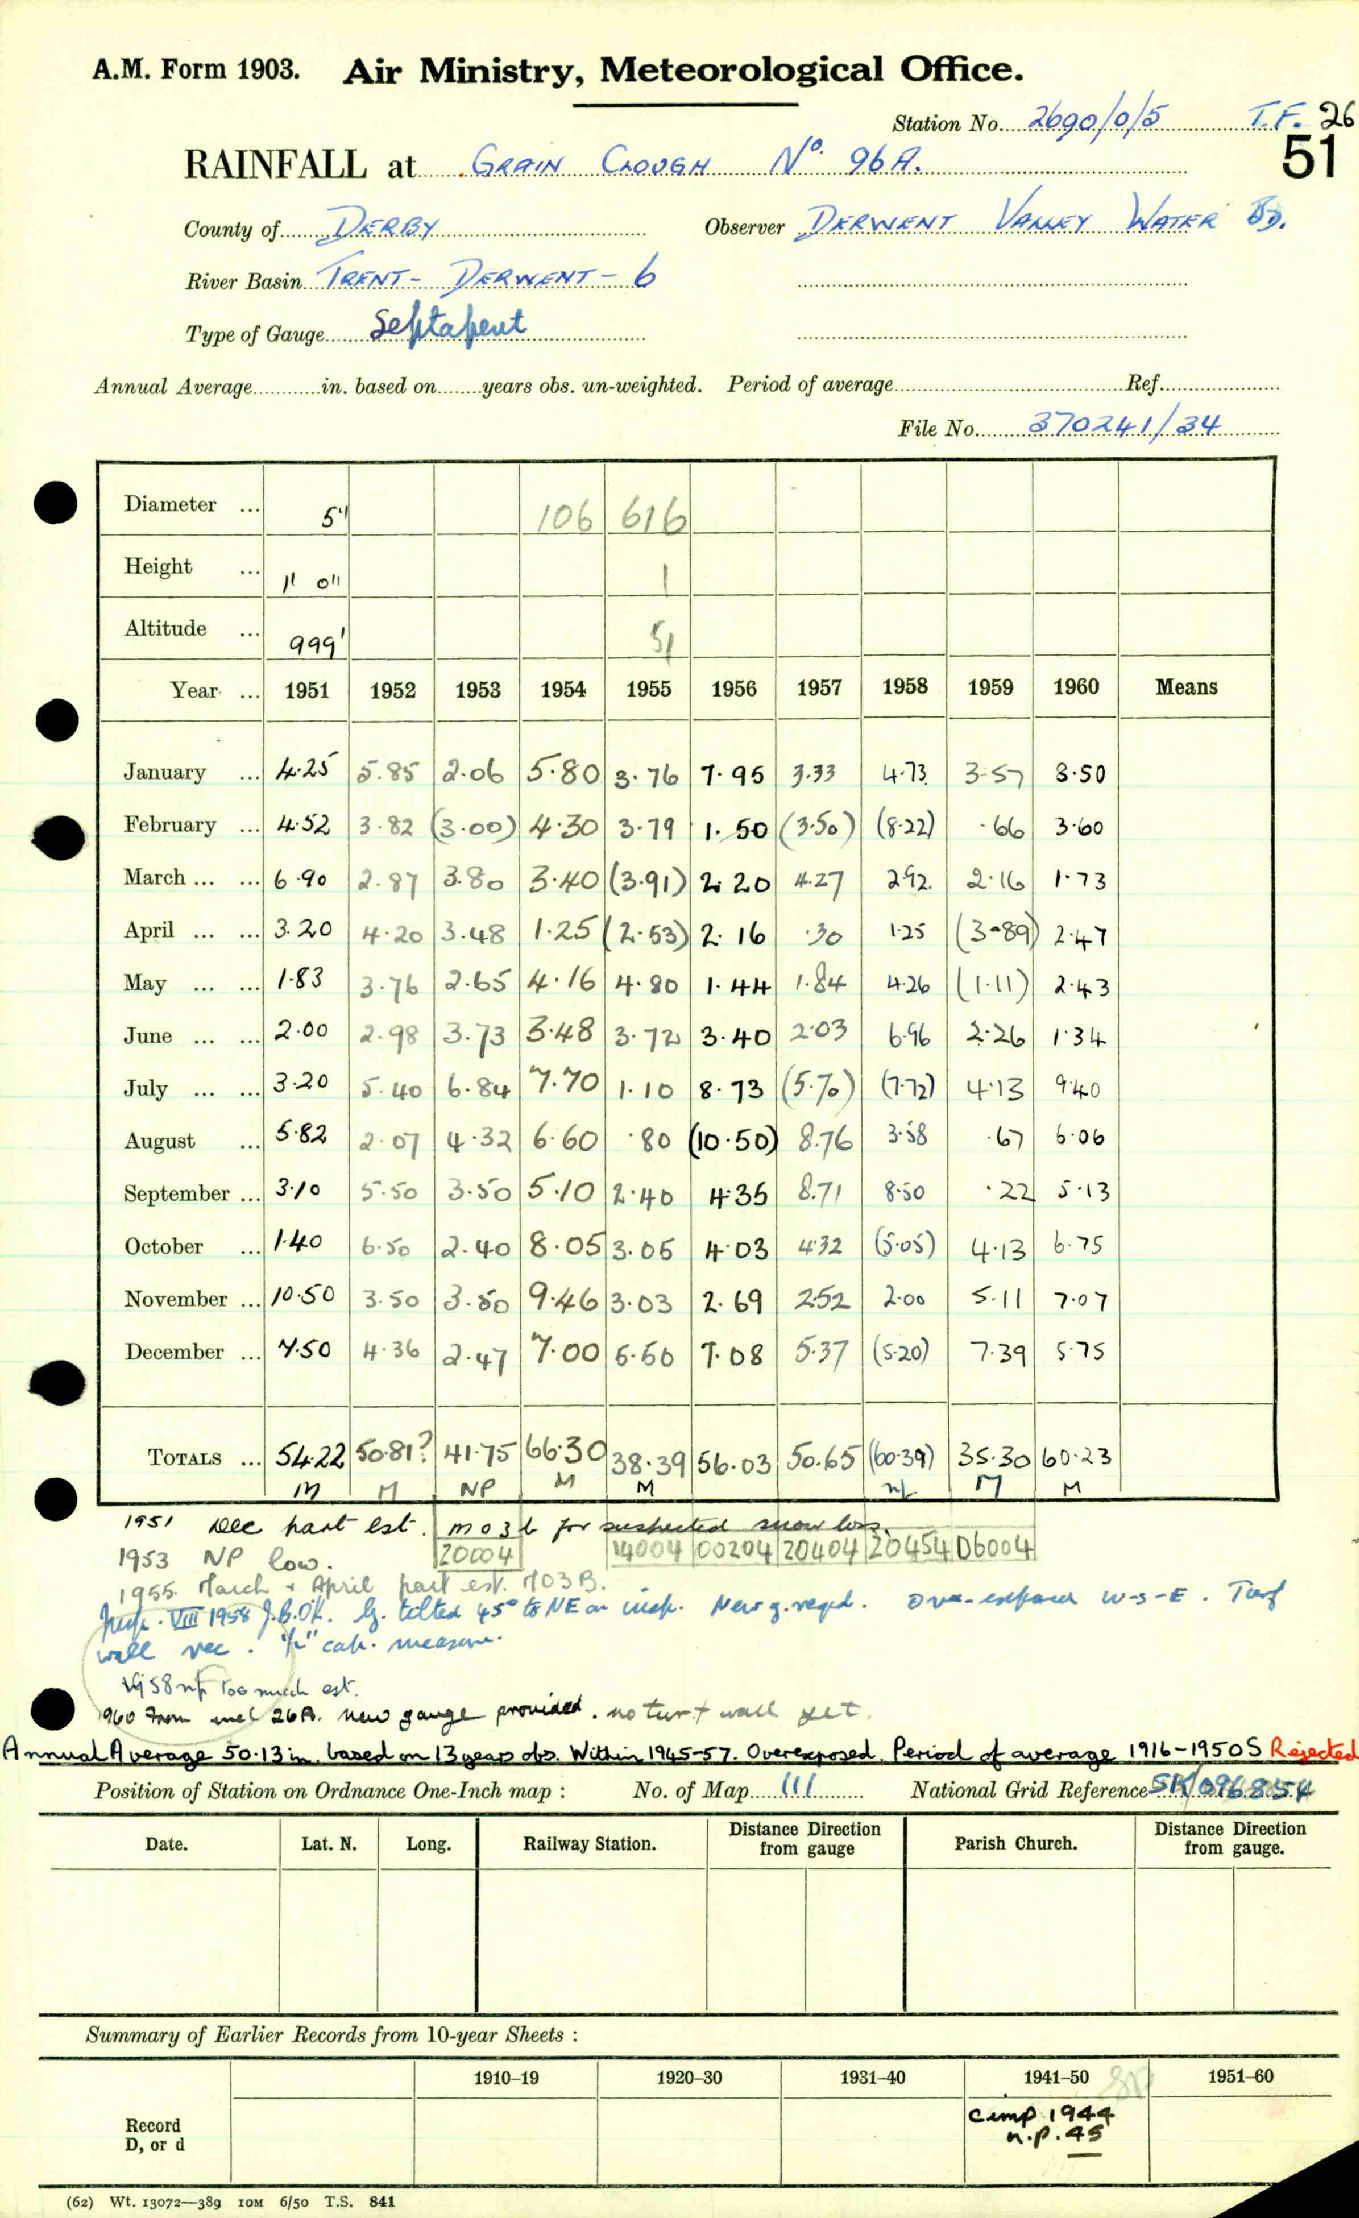 A.M. Form 1903. Air Ministry, Meteorological Office.
Station No. 2690/0/5 T.F. 26
51
RAINFALL at GRAIN CLOUGH No. 96A.
County of DERBY Observer DERWENT VALLEY WATER BD.
River Basin TRENT - DERWENT - 6
Type of Gauge Septapent
Annual Average in. based on years obs. un-weighted. Period of average Ref.
File No. 370241/34
Diameter ... 5" 106 616
Height ... 1' 0" 1
Altitude ... 999' 51
Year ... 1951 1952 1953 1954 1955 1956 1957 1958 1959 1960 Means
January ... 4.25 5.85 2.06 5.80 3.76 7.95 3.33 4.73 3.57 8.50
February ... 4.52 3.82 (3.00) 4.30 3.79 1.50 (3.50) (8.22) .66 3.60
March ... ... 6.90 2.87 3.80 3.40 (3.91) 2.20 4.27 2.92 2.16 1.73
April ... ... 3.20 4.20 3.48 1.25 (2.53) 2.16 .30 1.25 (3.89) 2.47
May ... ... 1.83 3.76 2.65 4.16 4.80 1.44 1.84 4.26 (1.11) 2.43
June ... ... 2.00 2.98 3.73 3.48 3.72 3.40 2.03 6.96 2.26 1.34
July ... ... 3.20 5.40 6.84 7.70 1.10 8.73 (5.70) (7.72) 4.13 9.40
August ... 5.82 2.07 4.32 6.60 .80 (10.50) 8.76 3.58 .67 6.06
September ... 3.10 5.50 3.50 5.10 2.40 4.35 8.71 8.50 .22 5.13
October ... 1.40 6.50 2.40 8.05 3.05 4.03 4.32 (5.05) 4.13 6.75
November ... 10.50 3.50 3.50 9.46 3.03 2.69 2.52 2.00 5.11 7.07
December ... 7.50 4.36 2.47 7.00 5.50 7.08 5.37 (5.20) 7.39 5.75
TOTALS ... 54.22 50.81? 41.75 66.30 38.39 56.03 50.65 (60.39) 35.30 60.23
M M NP M M np M M
1951 Dec part est. mo3b for suspected snow loss.
20004 14004 00204 20404 20454 D6004
1953 NP low.
1955 March & April part est. M03B.
Insp. VIII 1958 J.B.OK. G. tilted 45° to NE on insp. New g. reqd. Over-exposed W-S-E. Turf
wall rec. ½" cap. measure.
1958 np too much est.
1960 From incl 26A. new gauge provided. no turf wall yet.
Annual Average 50.13 in. based on 13 years obs. Within 1945-57. Overexposed. Period of average 1916-1950S Rejected
Position of Station on Ordnance One-Inch map : No. of Map 111 National Grid Reference SK/096854
Date. Lat. N. Long. Railway Station. Distance Direction from gauge Parish Church. Distance Direction from gauge.
Summary of Earlier Records from 10-year Sheets :
1910-19 1920-30 1931-40 1941-50 1951-60
Record
D, or d
Comp 1944
n.p. 45
(62) Wt. 13072—389 10M 6/50 T.S. 841